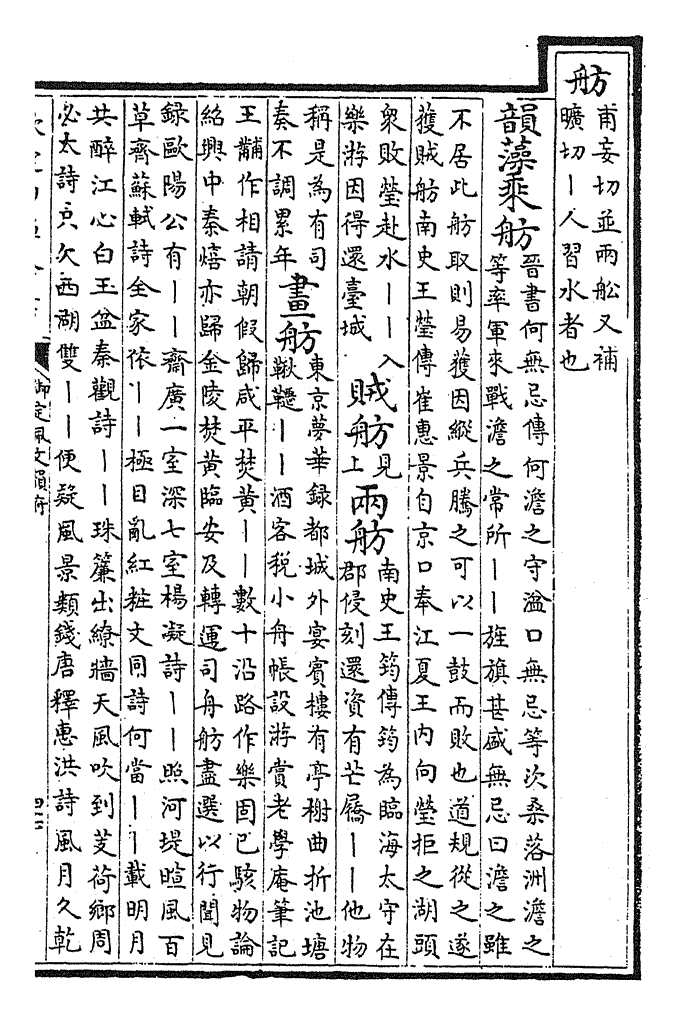 舫
甫妄切並兩舩又補
曠切丨人習水者也
韻藻乘舫
晉書何無忌傳何澹之守湓口無忌等次桑落洲澹之
等率軍來戰澹之常所丨丨旌旗甚盛無忌曰澹之雖
不居此舫取則易獲因縱兵騰之可以一鼓而敗也道規從之遂
獲賊舫南史王瑩傳崔惠景自京口奉江夏王内向瑩拒之湖頭
衆敗瑩赴水丨丨入
樂游因得還臺城
賊舫
見
上
兩舫
南史王筠傳筠為臨海太守在
郡侵刻還資有芒屩丨丨他物
稱是為有司
奏不調累年
畫舫
東京夢華録都城外宴賓樓有亭榭曲折池塘
鞦韆丨丨酒客税小舟帳設游賞老學庵筆記
王黼作相請朝假歸咸平焚黄丨丨數十沿路作樂固已駭物論
紹興中秦熺亦歸金陵焚黄臨安及轉運司舟舫盡選以行聞見
録歐陽公有丨丨齋廣一室深七室楊凝詩丨丨照河堤暄風百
草齊蘇軾詩全家依丨丨極目亂紅粧文同詩何當丨丨載明月
共醉江心白玉盆秦觀詩丨丨珠簾出繚牆天風吹到芰荷鄉周
必大詩只欠西湖雙丨丨便疑風景類錢唐釋惠洪詩風月久乾
御定佩文韻府